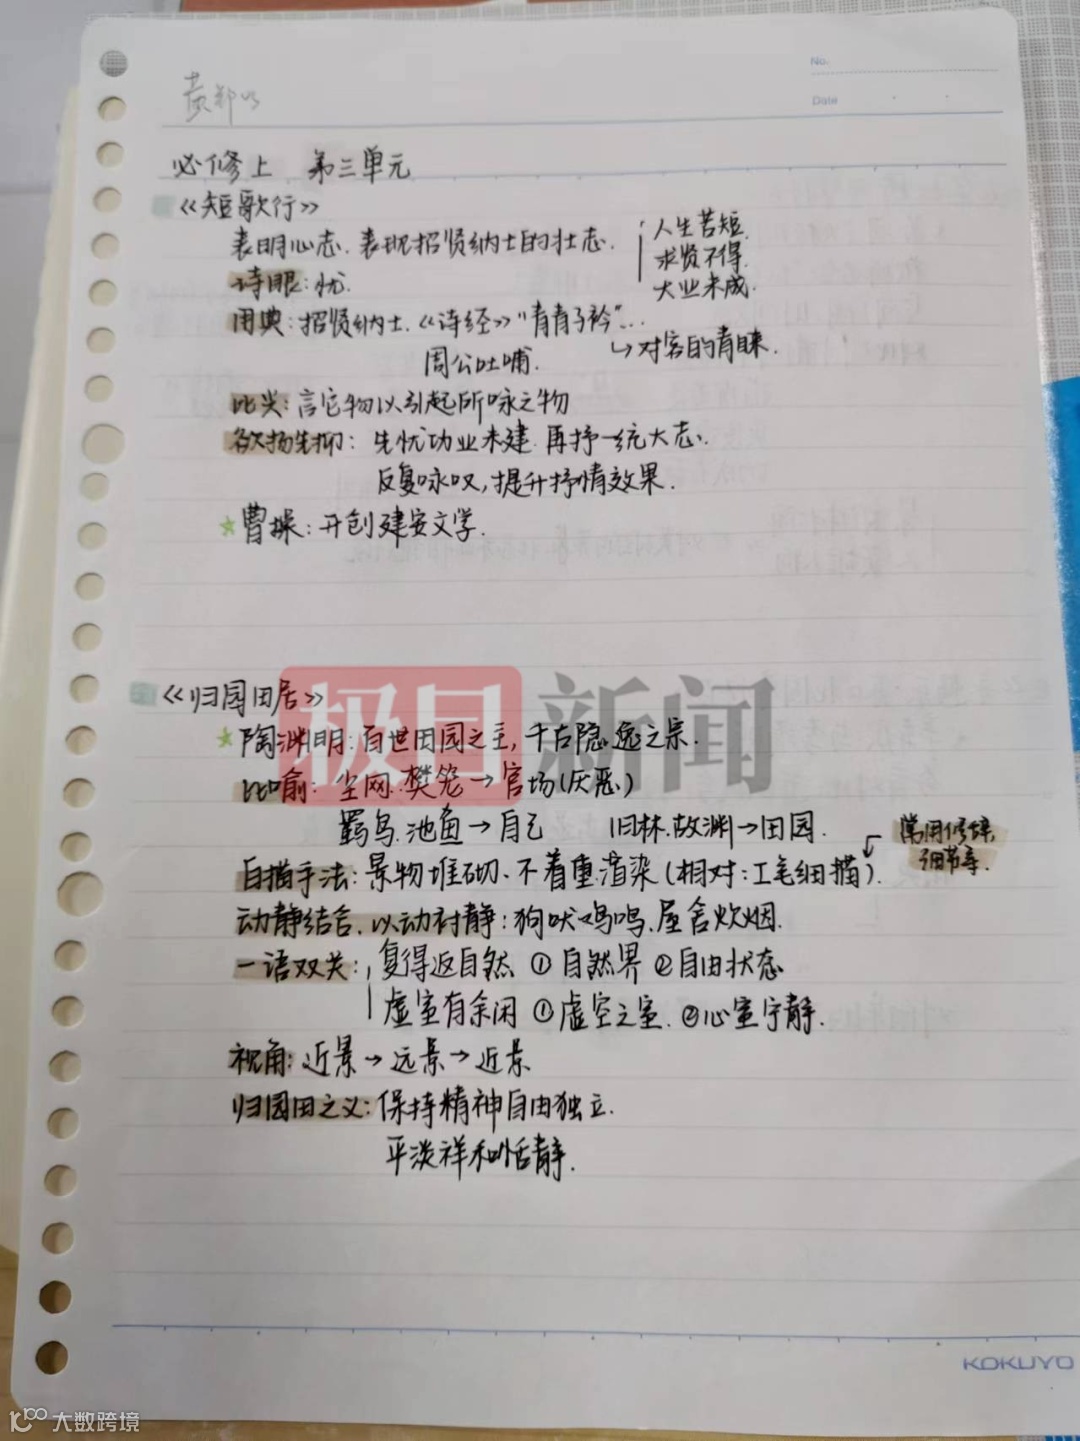 No.
Date
必修上 第三单元
《短歌行》
表明心志.表现招贤纳士的壮志.
人生苦短.
求贤不得.
大业未成.
诗眼:忧.
用典:招贤纳士.《诗经》"青青子衿"...
周公吐哺.
↳对客的青睐.
比兴:言它物以引起所咏之物
欲扬先抑:先忧功业未建.再抒一统大志.
反复咏叹,提升抒情效果.
☆曹操:开创建安文学.
《归园田居》
☆陶渊明:百世田园之主,千古隐逸之宗.
比喻:尘网.樊笼→官场(厌恶)
羁鸟.池鱼→自己 旧林.故渊→田园.
常用修辞,
细节等.
白描手法:景物堆砌、不着重渲染(相对:工笔细描).
动静结合.以动衬静:狗吠鸡鸣.屋舍炊烟.
一语双关:复得返自然 ①自然界 ②自由状态
虚室有余闲 ①虚空之室.②心室宁静.
视角:近景→远景→近景
归园田之义:保持精神自由独立.
平淡祥和恬静.
极目新闻
KOKUYO
大数跨境